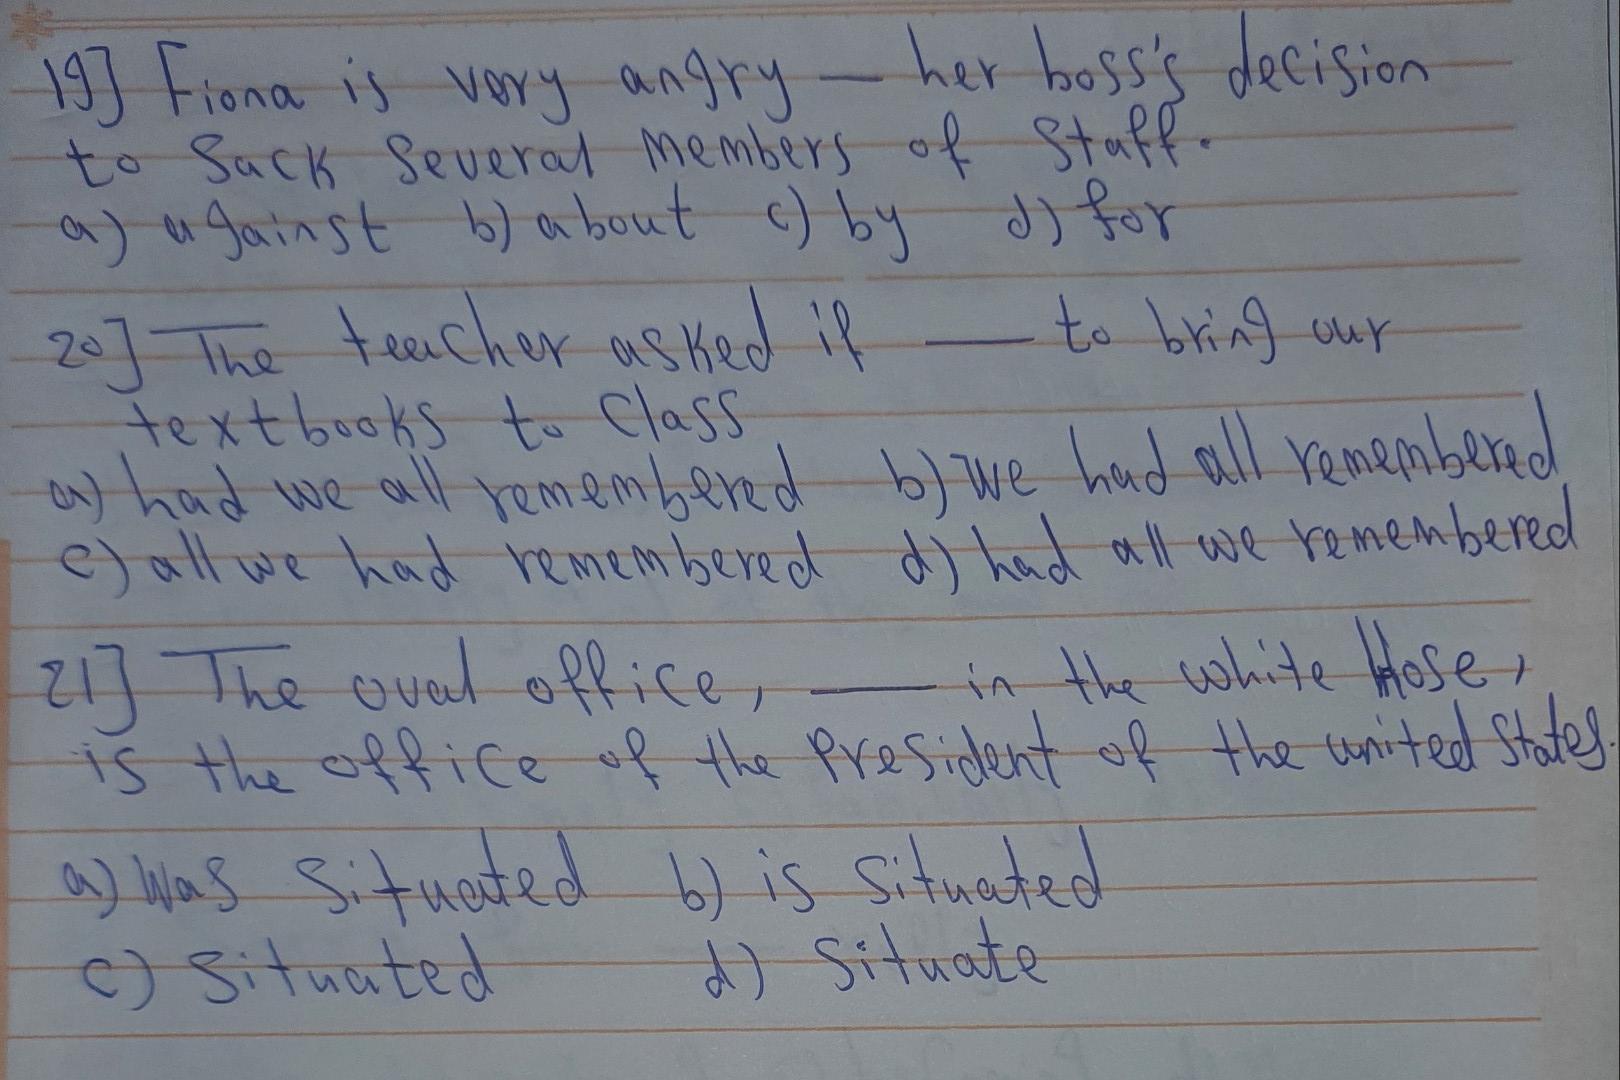 19] Fiona is very angry — her boss's decision
to Sack Several Members of Staff.
a) against b) about c) by d) for
20] The teacher asked if — to bring our
textbooks to Class
a) had we all remembered b) we had all remembered
c) all we had remembered d) had all we remembered
21] The oval office, — in the white Hose,
is the office of the President of the united States.
a) Was Situated b) is Situated
c) Situated d) Situate